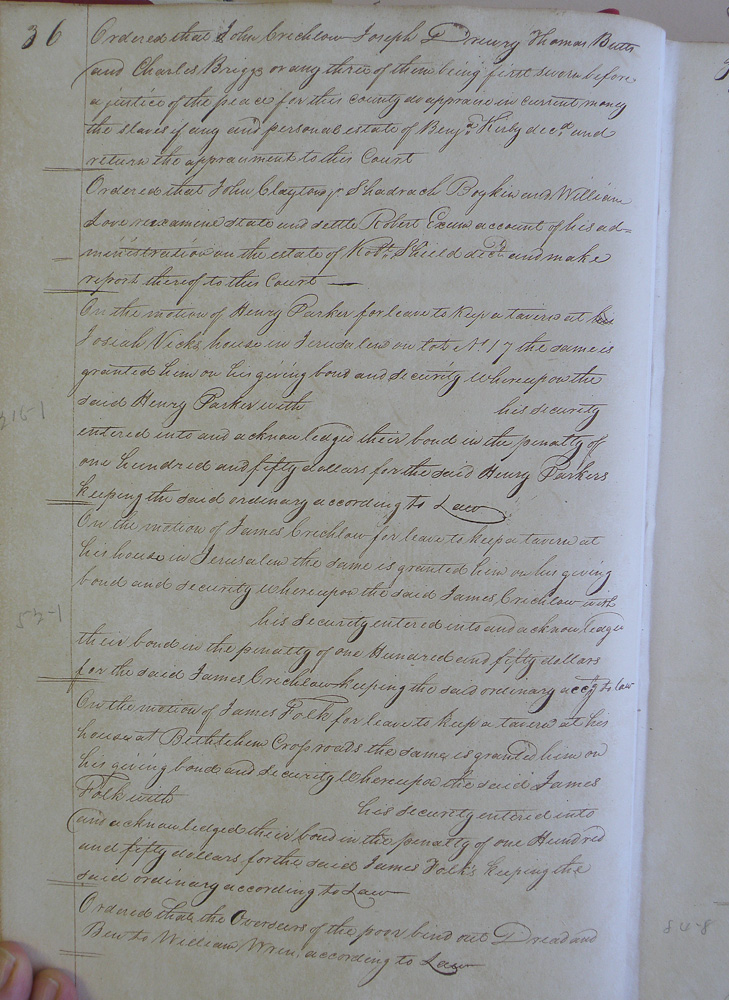 36
Ordered that John Crichlow Joseph D Drewry Thomas Butts
and Charles Briggs or any three of them being first sworn before
a justice of the peace for this county do appraise in current money
the slaves if any and personal estate of Benja. Kirby decd. and
return the appraisment to this Court
Ordered that John Clayton Shadrach Boykin and William
Love reexamine state and settle Robert Exum account of his ad=
ministration on the estate of Robt. Shield decd. and make
report thereof to this Court —
On the motion of Henry Parker for leave to keep a tavern at
Josiah Vicks house in Jerusalem on lot No. 17 the same is
granted him on his giving bond and security Whereupon the
said Henry Parker with his security
entered into and acknowledged their bond in the penalty of
one hundred and fifty dollars for the said Henry Parkers
keeping the said ordinary according to Law
On the motion of James Crichlow for leave to keep a tavern at
his house in Jerusalem the same is granted him on his giving
bond and security Whereupon the said James Crichlow with
his security entered into and acknowledge
their bond in the penalty of one Hundred and fifty dollars
for the said James Crichlow keeping the said ordinary accg to law
On the motion of James Folk for leave to keep a tavern at his
house at Bethlehem Cross roads the same is granted him on
his giving bond and security Whereupon the said James
Folk with his security entered into
and acknowledged their bond in the penalty of one Hundred
and fifty dollars for the said James Folk's keeping the
said ordinary according to Law
Ordered that the Overseers of the poor bind out Dread and
Ben to William Wren according to Law
53-1
84-8